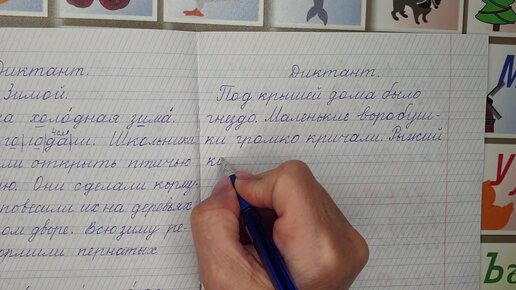 Диктант.
Зимой.
холодная зима.
голодали. Школьники
открыть птичью
Они сделали корму-
повесили их на деревьях
дворе. Всю зиму
пернатых
Диктант.
Под крышей дома было
гнездо. Маленькие воробуш-
ки громко кричали. Рыжий
ко